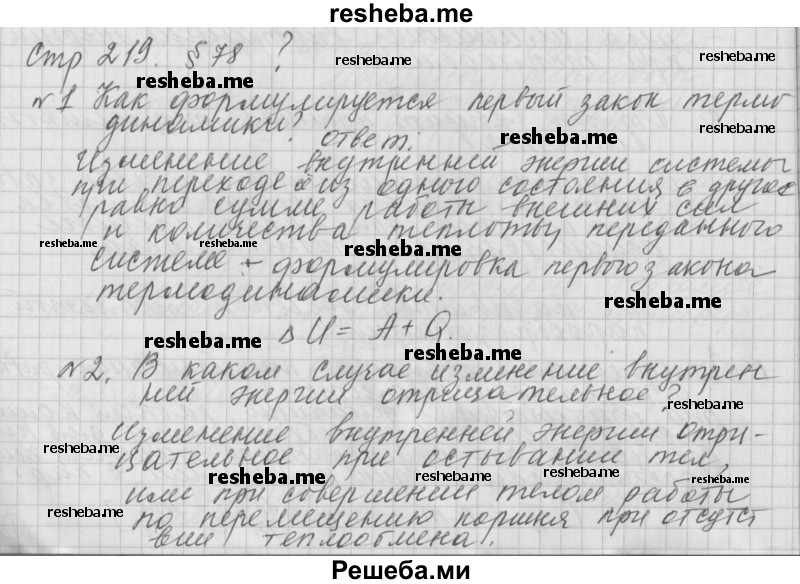 resheba.me
Стр 219. § 78 ?
resheba.me resheba.me resheba.me
№1 Как формулируется первый закон термо
динамики?
resheba.me
ответ. resheba.me
Изменение внутренней энергии системы
при переходе её из одного состояния в другое
равно сумме работы внешних сил
и количества теплоты, переданного
resheba.me resheba.me resheba.me resheba.me
системе - формулировка первого закона
термодинамики.
resheba.me
Δ U = A + Q.
resheba.me resheba.me
№2. В каком случае изменение внутрен
ней энергии отрицательное?
resheba.me
Изменение внутренней энергии отри-
resheba.me
цательное при остывании тел,
resheba.me resheba.me resheba.me resheba.me
или при совершении телом работы
resheba.me
по перемещению поршня при отсутст
вии теплообмена.
Решеба.ми